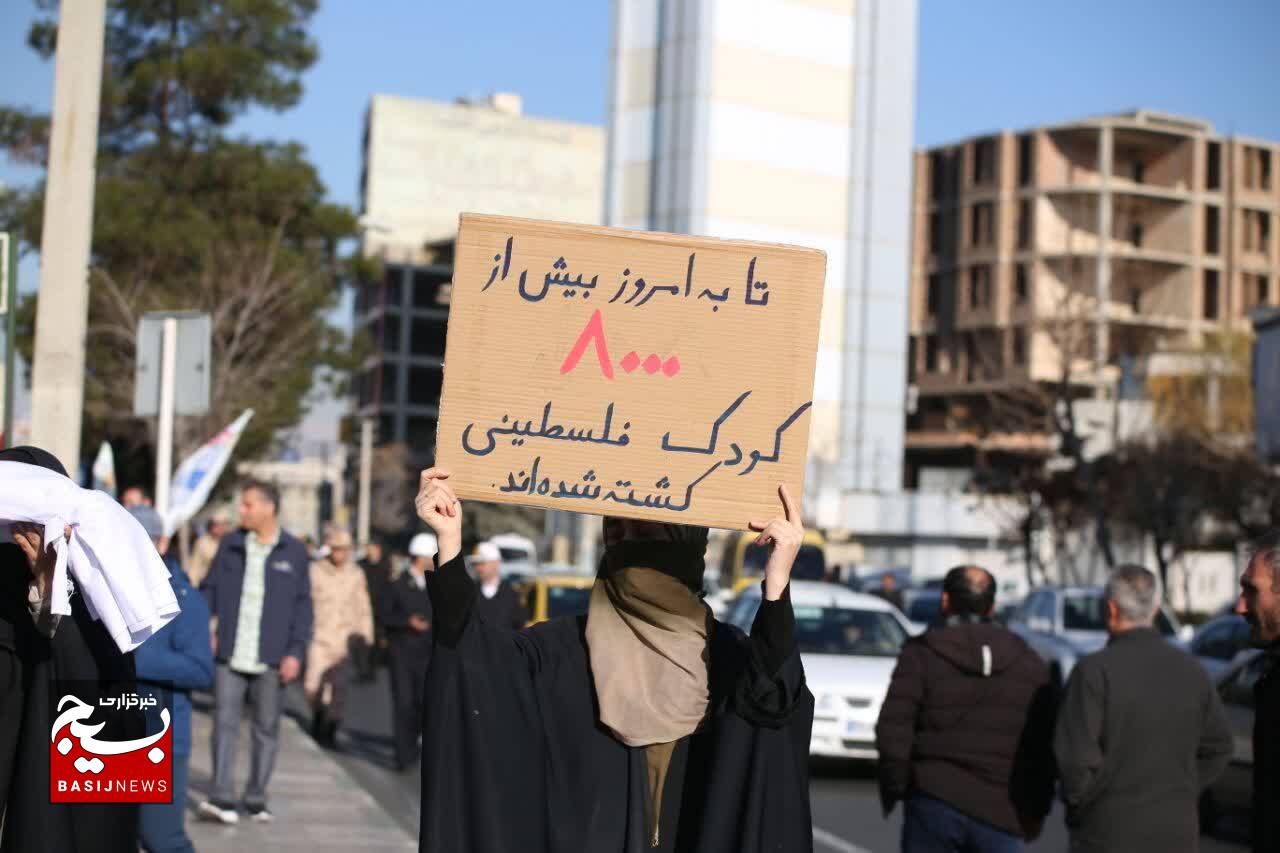 تا به امروز بیش از
۸۰۰۰
کودک فلسطینی
کشته شده‌اند.
خبرگزاری
بسیج
BASIJNEWS